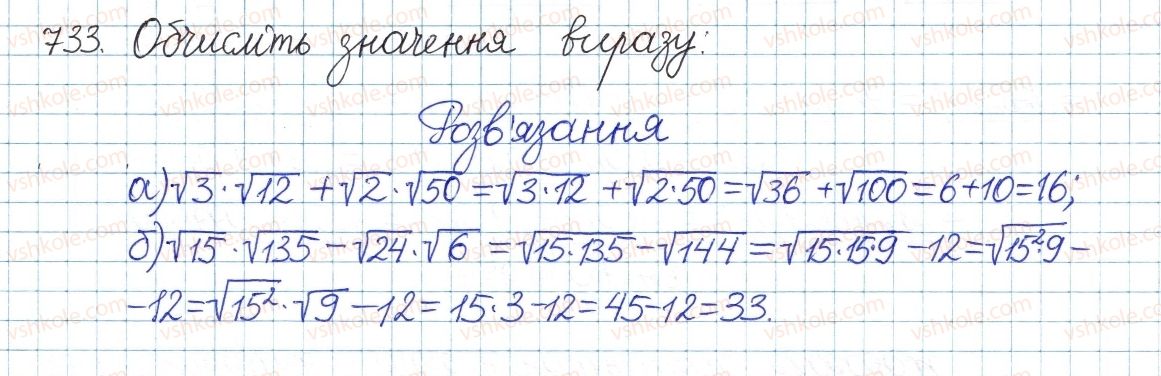 733. Обчисліть значення виразу:
Розв'язання
а) √3·√12 + √2·√50 = √(3·12) + √(2·50) = √36 + √100 = 6+10 = 16;
б) √15·√135 − √24·√6 = √(15·135) − √144 = √(15·15·9) − 12 = √(15²·9) −
− 12 = √(15²)·√9 − 12 = 15·3 − 12 = 45 − 12 = 33.